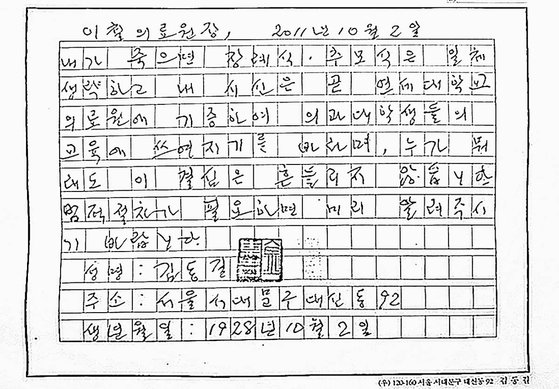 이 철 의료원장, 2011년 10월 2일
내가 죽으면 장례식·추모식은 일체
생략하고 내 시신은 곧 연세대학교
의료원에 기증하여 의과대학생들의
교육에 쓰여지기를 바라며, 누가 뭐
래도 이 결심은 흔들리지 않습니다
법적절차가 필요하면 미리 알려주시
기 바랍니다
성명 : 김동길
주소 : 서울 서대문구 대신동 92
생년월일 : 1928년 10월 2일
(우) 120-160 서울 서대문구 대신동 92 김 동 길